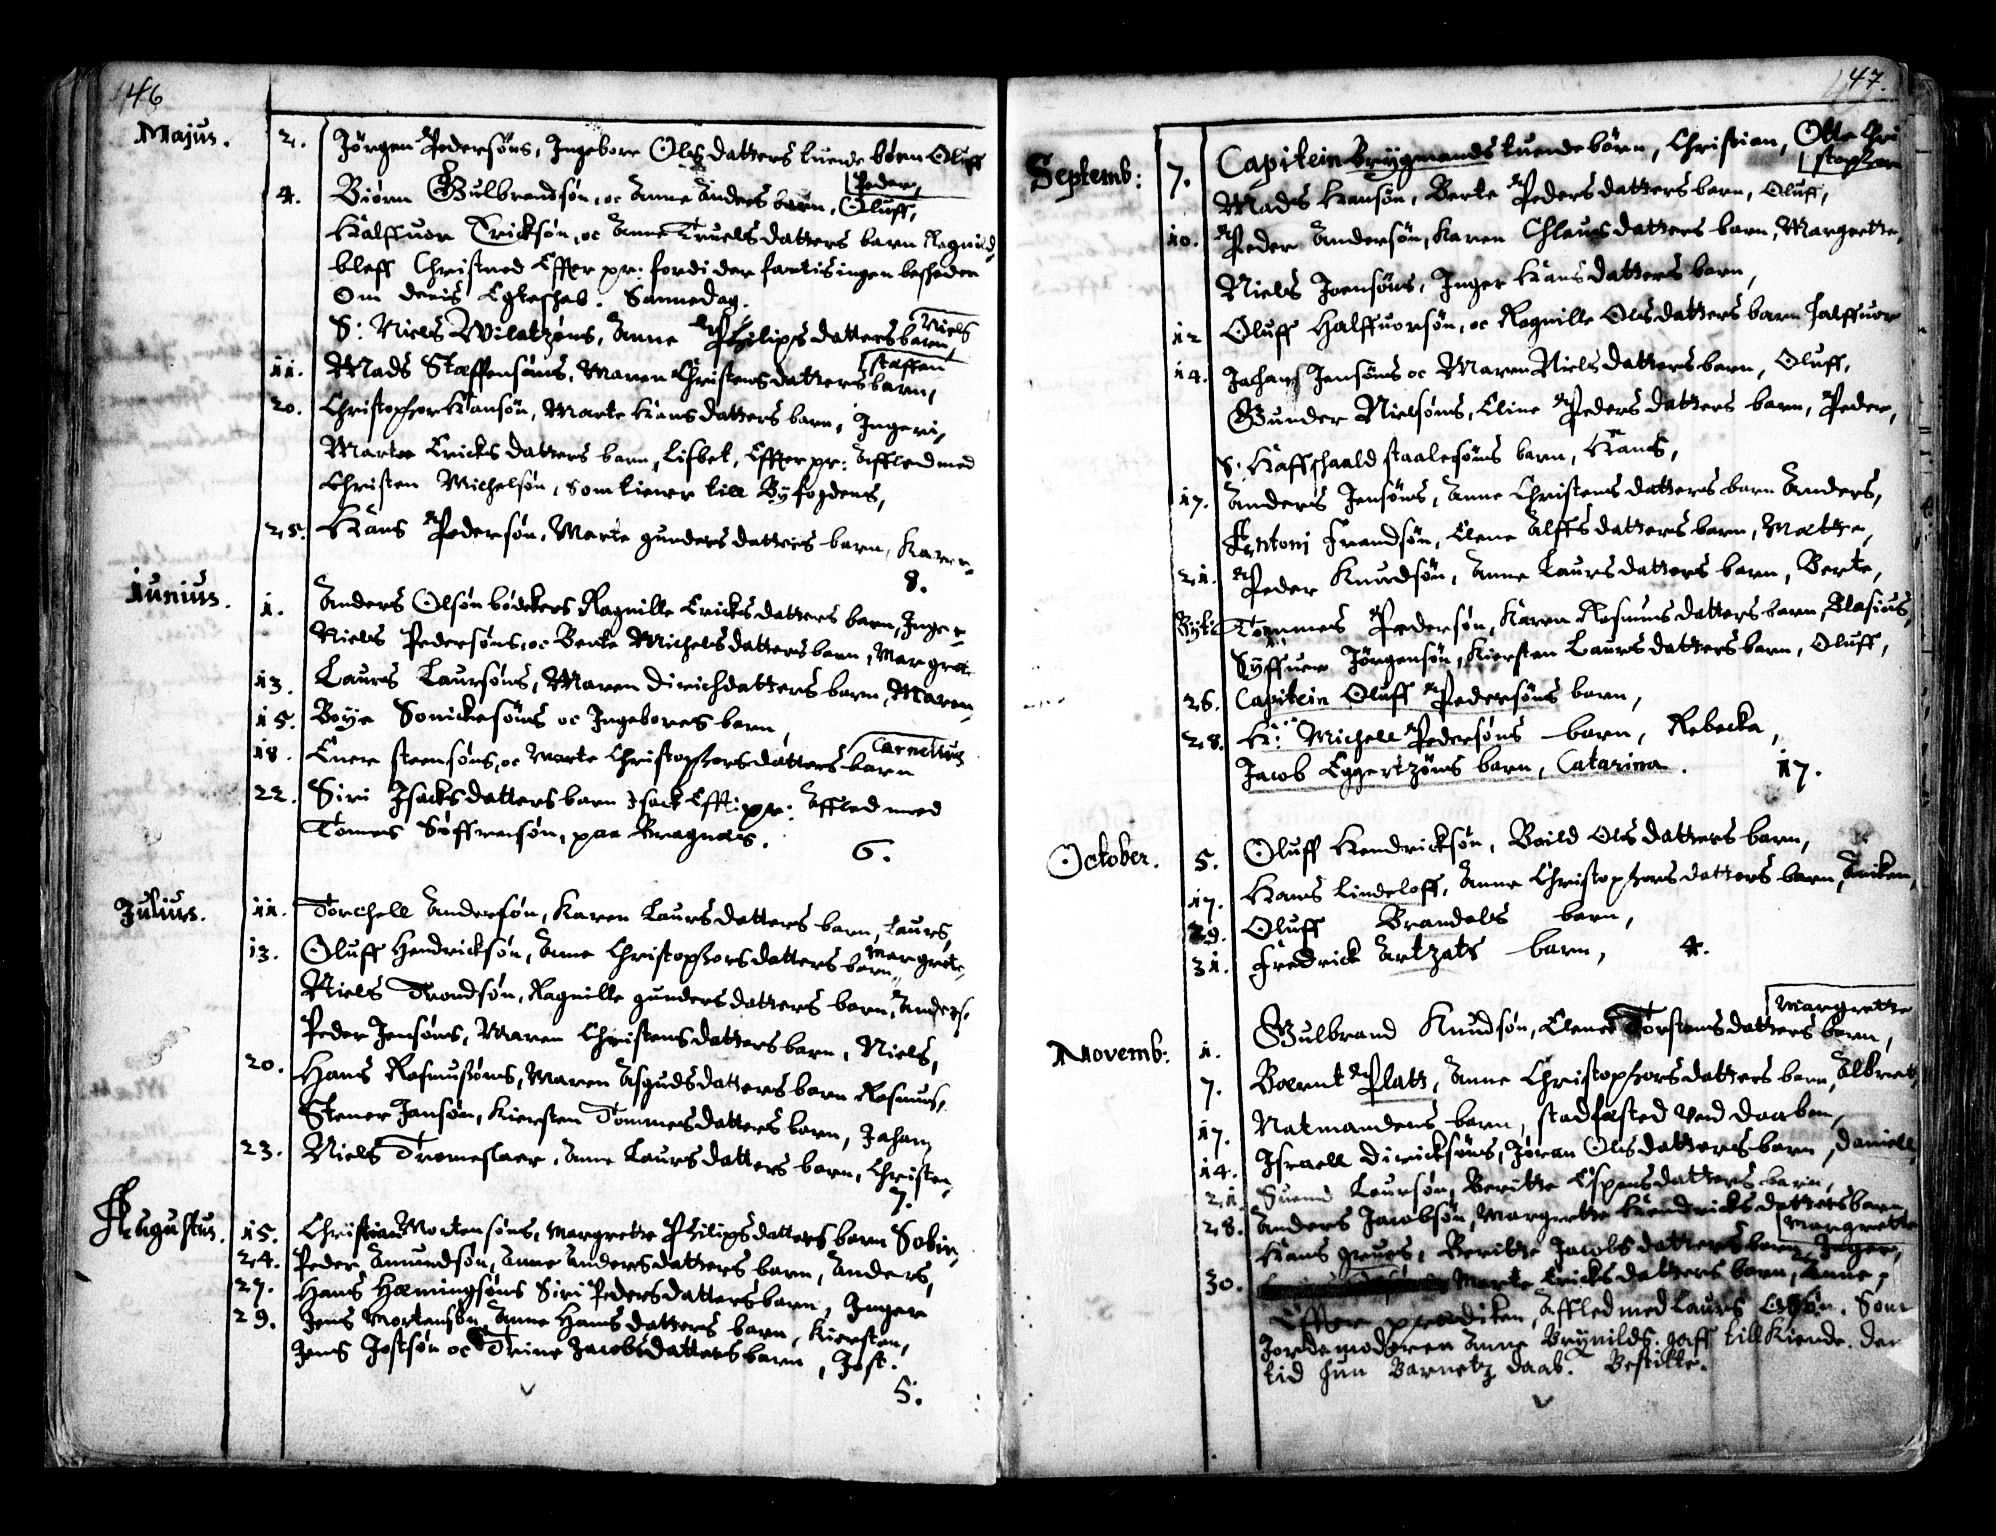 46
Majus.
2. Jörgen Pedersöns, Ingebore Olsdatters tuende börn Oluff
Peder,
4. Biörn Gulbrandsön, oc Anne Anders barn, Oluff,
Halffuor Ericksön, oc Anne Truelsdatters barn Ragnild
bleff Christned Effter pr: fordi der fantis ingen beskeden
Om deris Egteskab. Sannedag.
Niels
S: Niels Wilatzöns, Anne Philipsdatters barn,
Staffen
11. Mads Staffensöns, Maren Christensdatters barn,
20. Christopher Hansön, Marte Hansdatters barn, Ingeri,
Marte Ericksdatters barn, Lisbet, Effter pr: Affled med
Christen Michelsön, som tiener till Byfogdens,
25. Hans Pedersön, Marte gundersdatters barn, Karen
8.
Iunius.
1. Anders Olsön bödekers Ragnille Ericksdatters barn, Inger
Niels Pedersöns, oc Berte Michelsdatters barn, Margrete
13. Laurs Laursöns, Maren Dirichdatters barn, Maren
15. Boye Sönickesöns oc Ingebores barn,
Carnelius
18. Euer steensöns, oc Marte Christophersdatters barn
22. Siri Isacksdatters barn Isack Efft: pr: Affled med
Tomes Söffrensön, paa Bragnæs.
6.
Julius.
11. Torchell Andersön, Karen Laursdatters barn, Laurs,
13. Oluff Hendricksön, Anne Christophersdatters barn, Margrete
Niels Trondsön, Ragnille gundersdatters barn, Anders,
Peder Jensöns, Maren Christensdatters barn, Niels,
20. Hans Rasmussöns, Maren Asgudsdatters barn Rasmus,
Stener Jansön, Kiersten Tommesdatters barn, Johan,
23. Niels Tromeslaer, Anne Laursdatters barn, Christen,
7.
Augustus.
15. Christian Mortensöns, Margrete Philipsdatters barn
24. Peder Amundsön, Anne Andersdatters barn, Anders,
27. Hans Hemingsöns Siri Pedersdatters barn, Inger
29. Jens Mortensön, Anne Hansdatters barn, Kiersten,
Jens Jostsön oc Trine Jacobsdatters barn, Jost.
5.
47.
Septemb:
7. Capitein Brygmands tuende börn, Christian, Otte Chri
stopher
Mads Hansön, Berte Pedersdatters barn, Oluff,
10. Peder Andersön, Karen Chlausdatters barn, Margrette,
Niels Joensöns, Inger Hansdatters barn,
12 Oluff Halffuorsön, oc Ragnille Olsdatters barn Halffuor
14. Johans Jensöns oc Maren Nielsdatters barn, Oluff,
Gunder Nielsöns, Eline Pedersdatters barn, Peder,
S: staalesöns barn, Hans,
17. Anders Jensöns, Anne Christensdatters barn Anders,
Antoni Frandsön, Elene Alffsdatters barn, Matte,
21. Peder Knudsön, Anne Laursdatters barn, Berte,
Tommes Pedersön, Karen Rasmusdatters barn, Blasius,
Syffuer Jörgensön, Kiersten Laursdatters barn, Oluff,
26. Capitein Oluff Pedersöns barn,
28. Hr: Michell Pedersöns barn, Rebecka,
Jacob Eggertzöns barn, Catarina.
17.
October.
5. Oluff Hendricksön, Boild Olsdatters barn,
17. Hans Lindeloff, Anne Christophersdatters barn, Aniken,
29. Oluff Brandals barn,
31. Fredrick Artzats barn,
4.
Novemb:
Margrette
1. Gulbrand Knudsön, Elene Torstensdatters barn,
7. Bærnt Platt, Anne Christophersdatters barn, Albret,
17. Natmandens barn, stadfæsted ved daaben,
14. Israell Diricksöns, Jöran Olsdatters barn, Daniell,
21 Suend Laursön, Beritte Espensdatters barn,
28. Anders Jacobsön, Margrette Hendricksdatters barn,
Margrette
Hans Beritte Jacobsdatters barn, Inger,
30. Marte Ericksdatters barn, Anne,
Effter prediken, Affled med Laurs Olsön. Som
Jordemoderen Anne Brynilds. gaff till Kiende. der
tid hun Barnetz daab. Bestilte.